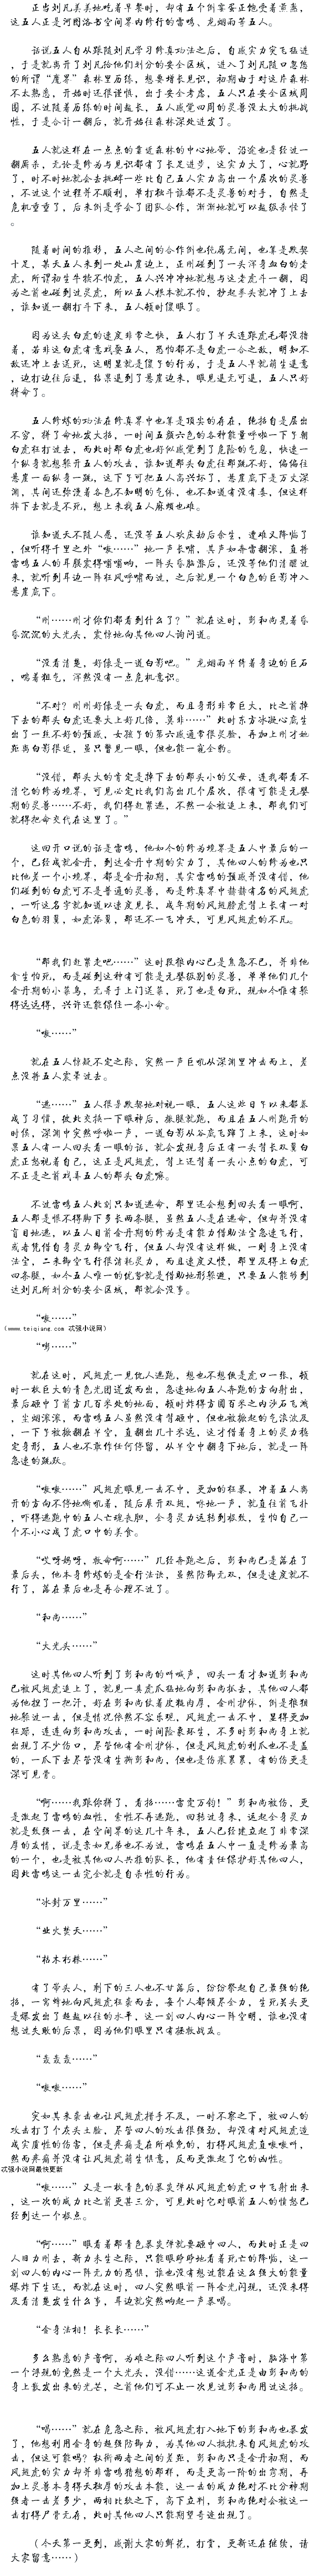 正当刘凡美美地吃着早餐时,却有五个倒霉蛋正饱受着煎熬,
这五人正是河图洛书空间界内修行的雷鸣、龙烟雨等五人。
话说五人自从跟随刘凡学习修真功法之后,自感实力突飞猛进
,于是就离开了刘凡给他们划分的安全区域,进入了刘凡随口忽悠
的所谓“魔界”森林里历练,想要增长见识,初期由于对这片森林
不太熟悉,开始时还很谨慎,出于安全考虑,五人只在安全区域周
围,不过随着历练的时间越长,五人感觉四周的灵兽没太大的挑战
性,于是合计一翻后,就开始往森林深处进发了。
五人就这样在一点点的靠近森林的中心地带,沿途也是经过一
翻厮杀,无论是修为与见识都有了长足进步,这实力大了,心就野
了,时不时地就会去挑衅一些比自己五人实力高出一个层次的灵兽
,不过这个过程并不顺利,单打独斗谁都不是灵兽的对手,自然是
危机重重了,后来倒是学会了团队合作,渐渐地就可以越级杀怪了
。
随着时间的推移,五人之间的合作倒也优属无间,也算是默契
十足,某天五人来到一处山崖边上,正刚碰到了一头浑身血白的老
虎,所谓初生牛犊不怕虎,五人兴冲冲地就想与这老虎斗一翻,因
为之前也碰到过灵虎,所以五人根本就不怕,抄起拳头就冲了上去
,谁知道一翻打斗下来,五人顿时傻眼了。
因为这头白虎的速度非常之快,五人打了半天连跟虎毛都没揩
着,若非这白虎有意戏耍五人,恐怕都不是白虎一合之敌,明知不
敌还冲上去送死,这明显就是傻子的行为,于是五人早就萌生退意
,边打边往后退,结果退到了悬崖边来,眼里退无可退,五人只好
拼命了。
五人修炼的功法在修真界中也算是顶尖的存在,绝招自是层出
不穷,拼了命地发大招,一时间五颜六色的各种能量呼啦一下子朝
白虎狂打过去,而此时那白虎也好似感觉到了危险的气息,快速一
个纵身就想躲开五人的攻击,谁知道那头白虎往那跳不好,偏偏往
悬崖一面纵身一跳,这下子可把五人高兴坏了,悬崖底下是万丈深
渊,其间还弥漫着各色不知明的气体,也不知道有没有毒,但这样
摔下去就是不死,想上来找五人麻烦也难。
谁知道天不随人愿,还没等五人欢庆劫后余生,遭难又降临了
,但听得千里之外“嗷……”地一声长啸,其声如奔雷翻滚,直将
雷鸣五人的耳膜震得嗡嗡响,一阵头昏脑涨后,还没等他们清醒过
来,就听到耳边一阵狂风呼啸而过,之后就见一个白色的巨影冲入
悬崖底下。
“刚……刚才你们都看到什么了?”就在这时,彭和尚晃着昏
昏沉沉的大光头,震惊地向其他四人询问道。
“没看清楚,好像是一道白影吧。”龙烟雨半倚着身边的巨石
,喘着粗气,浑然没有一点危机意识。
“不对?刚刚好像是一头白虎,而且身形非常巨大,比之前掉
下去的那头白虎还要大上好几倍,莫非……”此时东方冰凝心底生
出了一丝不好的预感,女孩子的第六感通常很灵验,再加上刚才她
距离白影很近,虽只瞥见一眼,但也能一窥全豹。
“没错,那头大的肯定是掉下去的那头小的父母,连我都看不
清它的修为境界,可见必定比我们高出几个层次,很有可能是元婴
期的灵兽……不好,我们得赶紧逃,不然一会被追上来,那我们可
就得把命交代在这里了。”
这回开口说的话是雷鸣,他如今的修为境界是五人中最后的一
个,已经成就金丹,到达金丹中期的实力了,其他四人的修为也只
比他差一个小境界,都是金丹初期,其实雷鸣的预感并没有错,他
们碰到的白虎可不是普通的灵兽,而是修真界中赫赫有名的风翅虎
,一听这名字就知道以速度见长,成年期的风翅虎背上长有一对
白色的羽翼,如虎添翼,那还不一飞冲天,可见风翅虎的不凡。
“那我们赶紧走吧……”这时段狼内心已是焦急不已,并非他
贪生怕死,而是碰到这种有可能是元婴级别的灵兽,单单他们几个
金丹期的小菜鸟,无异于上门送菜,死了也是白死,现如今惟有躲
得远远得,兴许还能保住一条小命。
“嗷……”
就在五人惊疑不定之际,突然一声巨吼从深渊里冲击而上,差
点没将五人震晕过去。
“逃……”五人很是默契地对视一眼,五人这些日子以来都养
成了习惯,彼此交换一下眼神后,撒腿就跑,而且在五人刚跑开的
时候,深渊中突然呼啦一声,一道白影从谷底飞蹿了上来,这时如
果五人有一人回头看一眼的话,就会发现身后正有一头背长双翼白
虎正怒视着自己,这正是风翅虎,背上还背着一头小点的白虎,可
不正是之前戏弄五人的那头白虎嘛。
不过雷鸣五人此刻只知道逃命,那里还会想到回头看一眼啊,
五人都是恨不得脚下多长两条腿,虽然五人是在逃命,但却并没有
盲目地逃,以五人目前金丹期的修为是有能力借助法宝急速飞行,
或者凭借自身灵力御空飞行,但五人却没有这样做,一则身上没有
法宝,二来御空飞行很消耗灵力,而且速度又慢,那里及得上白虎
四条腿,如今五人唯一的优势就是借助地形躲避,只要五人能够到
达刘凡所划分的安全区域,那就会没事。
“嗷……”
(www.teiqiang.com 忒强小说网)
“嘭……”
就在这时,风翅虎一见仇人逃跑,想也不想便是虎口一张,顿
时一枚巨大的青色光团迸发而出,急速地向五人奔跑的方向射出,
最后砸中了前方几百米处的地面,顿时炸得方圆百米之内沙石飞溅
,尘烟滚滚,而雷鸣五人虽然没有替砸中,但也被掀起的气浪波及
,一下子被掀翻在半空,直翻出几十米远,这才借着身上的灵力稳
定身形,五人也不敢作任何停留,从半空中翻身下地后,就是一阵
急速的跳跃。
“嗷嗷……”风翅虎眼见一击不中,更加的狂暴,冲着五人离
开的方向不停地嘶吼着,随后展开双翅,咻地一声,就直往前飞扑
,吓得逃跑中的五人亡魂丧胆,全身灵力运转到极致,生怕自己一
个不小心成了虎口中的美食。
“哎呀妈呀,救命啊……”几经奔跑之后,彭和尚已是落在了
最后头,他本身修炼的是金行法诀,虽然防御无双,但是速度就不
行了,落在最后也是再合理不过了。
“和尚……”
“大光头……”
这时其他四人听到了彭和尚的叫喊声,回头一看才知道彭和尚
已被风翅虎追上了,就见一只虎爪猛地向彭和尚抓去,其他四人都
为他捏了一把汗,好在彭和尚仗着皮粗肉厚,金刚护体,倒是狼狈
地躲过一击,但是情况依然不容乐观,风翅虎一击不中,显得更加
狂躁,连连向彭和尚攻击,一时间险象环生,不多时彭和尚身上就
出现了不少伤口,尽管他有金刚护体,但是风翅虎的利爪也不是盖
的,一爪下去尽管没有生撕彭和尚,但也是伤痕累累,有的伤更是
深可见骨。
“啊……我跟你拼了,看招……雷霆万钧!”彭和尚被伤,更
是激起了雷鸣的血性,索性不再逃跑,回转过身来,运起全身灵力
就是致强一击,在空间界的这几十年来,五人已经建立起了非常深
厚的友情,说是亲如兄弟也不为过,雷鸣在五人中一直是修为最高
的一个,也是被其他四人共推的队长,他有责任保护好其他四人,
因此雷鸣这一击完全就是自杀性的行为。
“冰封万里……”
“业火焚天……”
“枯木朽株……”
有了带头人,剩下的三人也不甘落后,纷纷祭起自己最强的绝
招,一窝蜂地向风翅虎狂袭而去,每个人都倾尽全力,生死关头更
是爆发出了超越以往的水平,这一刻四人内心一阵空明,谁也没有
想过失败的后果,因为他们眼里只有拯救战友。
“轰轰轰……”
“嗷嗷……”
突如其来袭击也让风翅虎措手不及,一时不察之下,被四人的
攻击打了个灰头土脸,尽管四人的攻击很强劲,却没有对风翅虎造
成实质性的伤害,但是疼痛是在所难免的,打得风翅虎直嗷嗷叫,
然而疼痛并没有让风翅虎萌生恨意,反而更激起了它的凶性。
忒强小说网最快更新
“嗷……”又是一枚青色的暴炎弹从风翅虎的虎口中飞射出来
,这一次的威力比之前更甚三分,可见此时它对眼前五人的愤怒已
经到达一个极点。
“啊……”眼看着那青色暴炎弹就要砸中四人,而此时正是四
人旧力刚去,新力未生之际,只能眼睁睁地看着死亡的降临,这一
刻四人的内心一阵无力的恐惧,谁也没有想过能在这么强大的能量
爆炸下生还,而就在这时,四人突然眼前一阵金光闪现,还没来得
及看清楚发生什么事,耳边就突然响起一声暴喝。
“金身法相!长长长……”
多么熟悉的声音啊,为难之际四人听到这个声音时,脑海中第
一个浮现的竟然是一个大光头,没错……这道金光正是由彭和尚的
身上散发出来的光芒,之前他们可不止一次见过彭和尚用过这招。
“喝……”就在危急之际,被风翅虎打入地下的彭和尚也暴发
了,他想利用金身的超强防御力,为其他四人抵抗来自风翅虎的攻
击,但这可能吗?杠衡两者之间的差距,彭和尚只是金丹初期,而
风翅虎的实力却并非雷鸣猜想的那样,而是更高一阶的出窍期,再
加上灵兽本身得天独厚的攻击本能,这一击的威力绝对不比分神期
强者一击差多少,两相比较之下,高下立判,彭和尚绝对会被这一
击打得尸骨无存,此时其他四人只能期望奇迹出现了。
(今天第一更到,感谢大家的鲜花,打赏,更新还在继续,请
大家留意……)